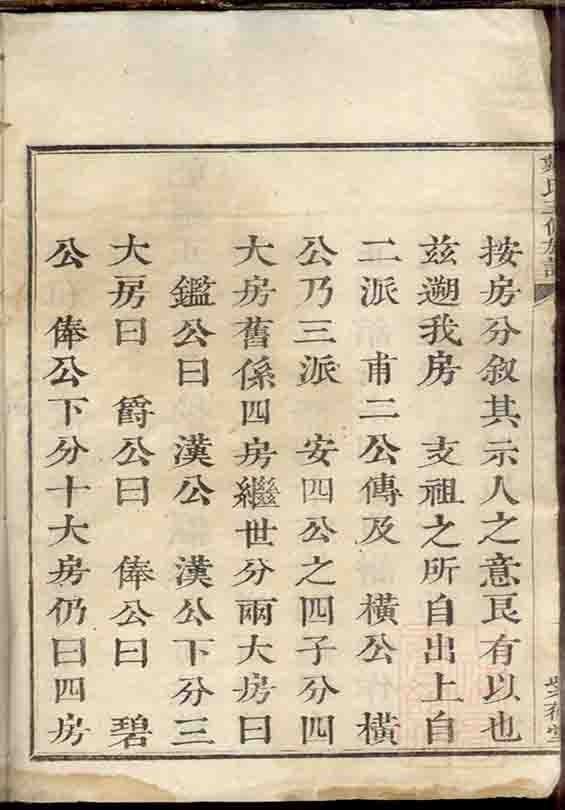 按房分叙其示人之意良有以也
兹遡我房　支祖之所自出上自
二派　甫二公傳及　橫公　橫
公乃三派　安四公之四子分四
大房舊係四房繼世分兩大房曰
　鑑公曰　漢公　漢公下分三
大房曰　爵公曰　俸公曰　碧
公　俸公下分十大房仍曰四房